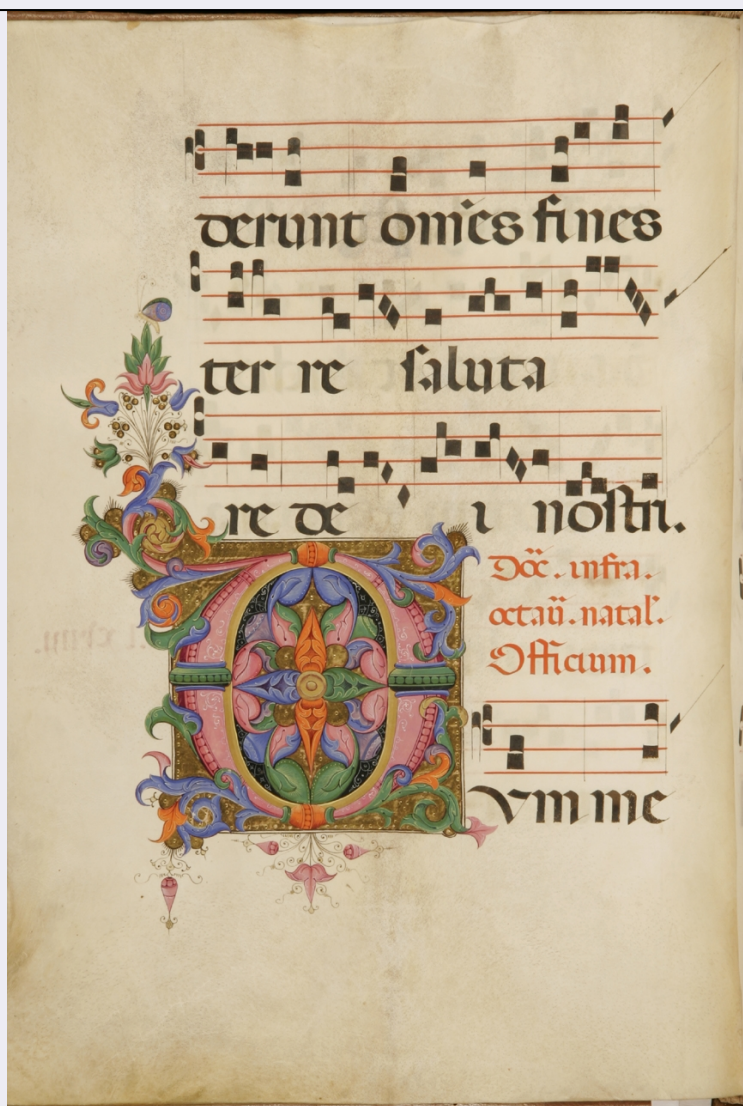 derunt om̅es fines
ter re saluta
re de i nostri.
Doc̅. infra.
octau̅. natal'.
Officium.
Dum me